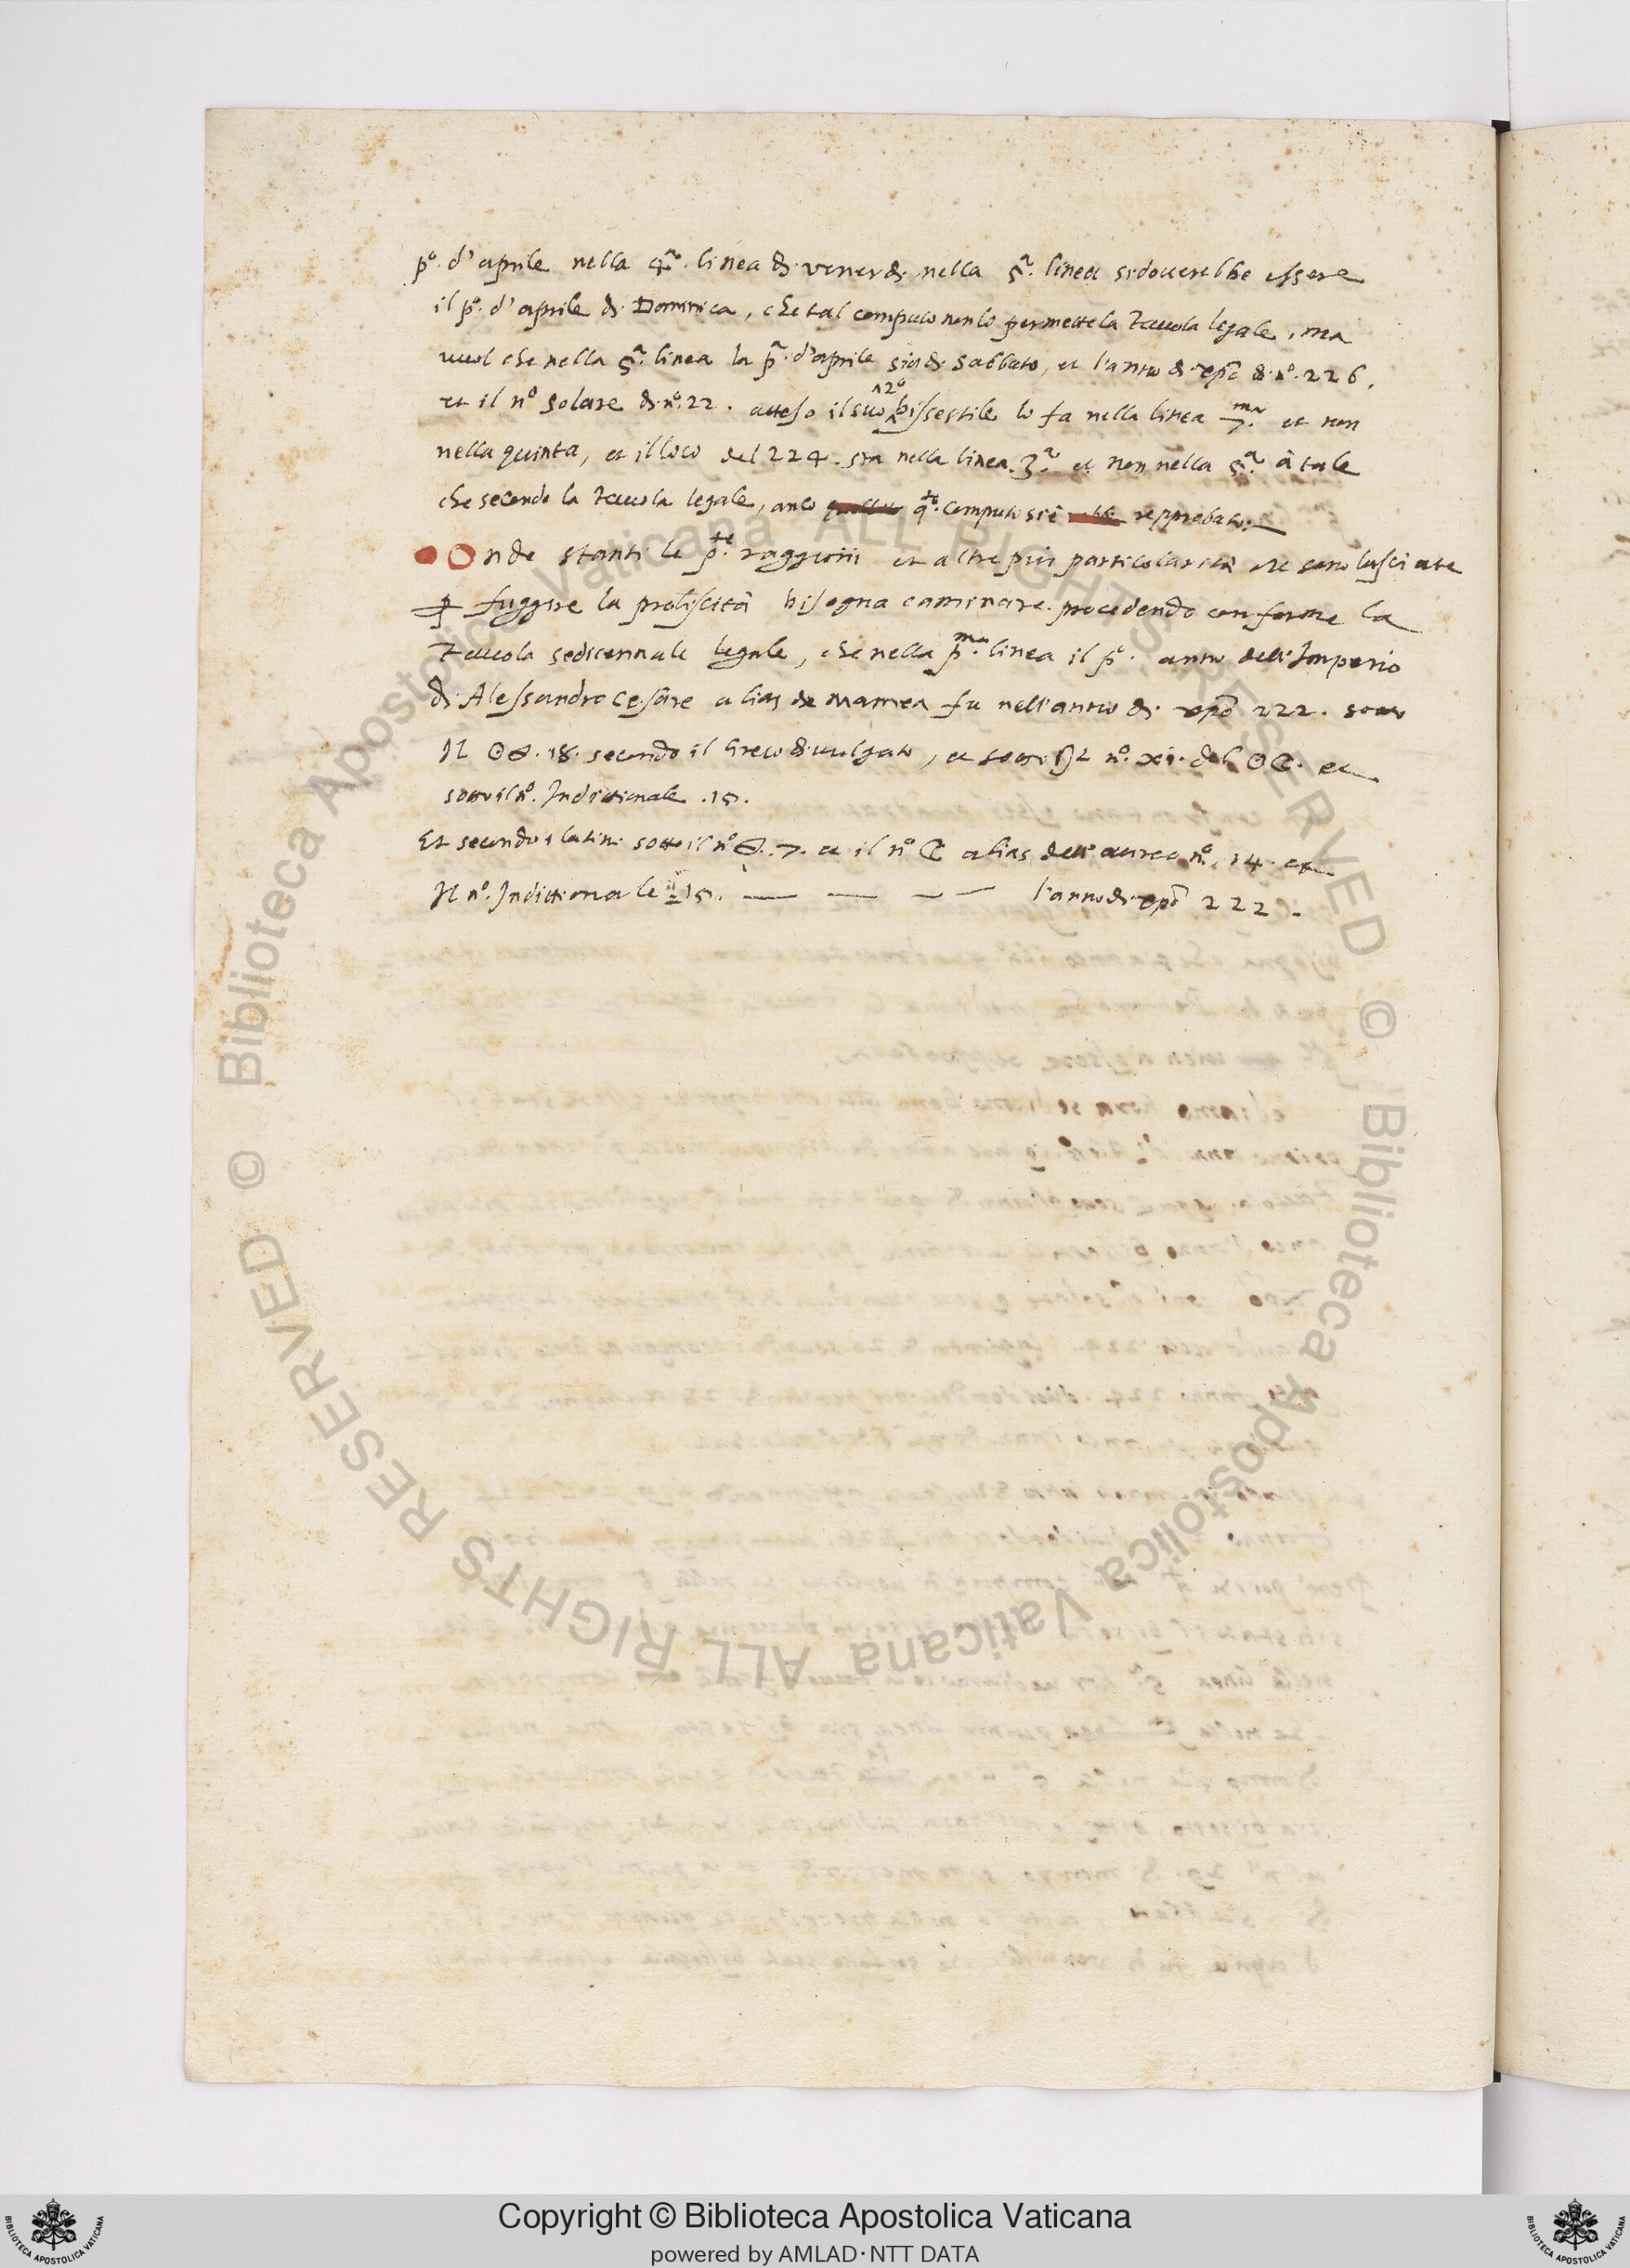 pº. d'aprile nella 4ª. linea di venerdi nella 5ª. linea si doverebbe essere
il pº. d'aprile di Domĩnica, che tal computo non lo permette la Tavola legale, ma
vuol che nella 5ª. linea la pª. d'aprile sia di sabbato, et l'anno di xpõ di nº. 226.
et il nº solare di nº. 22. atteso il suo 12º bissestile lo fa nella linea 7.ma et non
nella quinta, et il loco del 224. sta nella linea .3ª. et non nella 5ª. à tale
che secondo la Tavola legale, anco q.to computo si è reprobato.
Onde stanti le p.te raggioni et altre più particolarità che sono lasciate
ꝑ fuggire la prolissità bisogna caminare procedendo conforme la
Tavola sedicennale legale, che nella p.ma linea il pº. anno dell'Imperio
di Alessandro Cesare alias de Mamea fu nell'anno di xpõ 222. sotto
Il ☉. 18. secondo il Greco divulgato, et sotto il nº. xi. del ☾. et
sotto il nº. Indittionale .15.
Et secondo i latini sotto il nº ☉. 7. et il nº ☾ alias dell'aureo nº. 14. et
Il nº. Indittionale 15. — — — l'anno di xpõ 222.
Copyright © Biblioteca Apostolica Vaticana
powered by AMLAD·NTT DATA
© Biblioteca Apostolica Vaticana ALL RIGHTS RESERVED
© Biblioteca Apostolica Vaticana ALL RIGHTS RESERVED
BIBLIOTECA APOSTOLICA VATICANA
BIBLIOTECA APOSTOLICA VATICANA